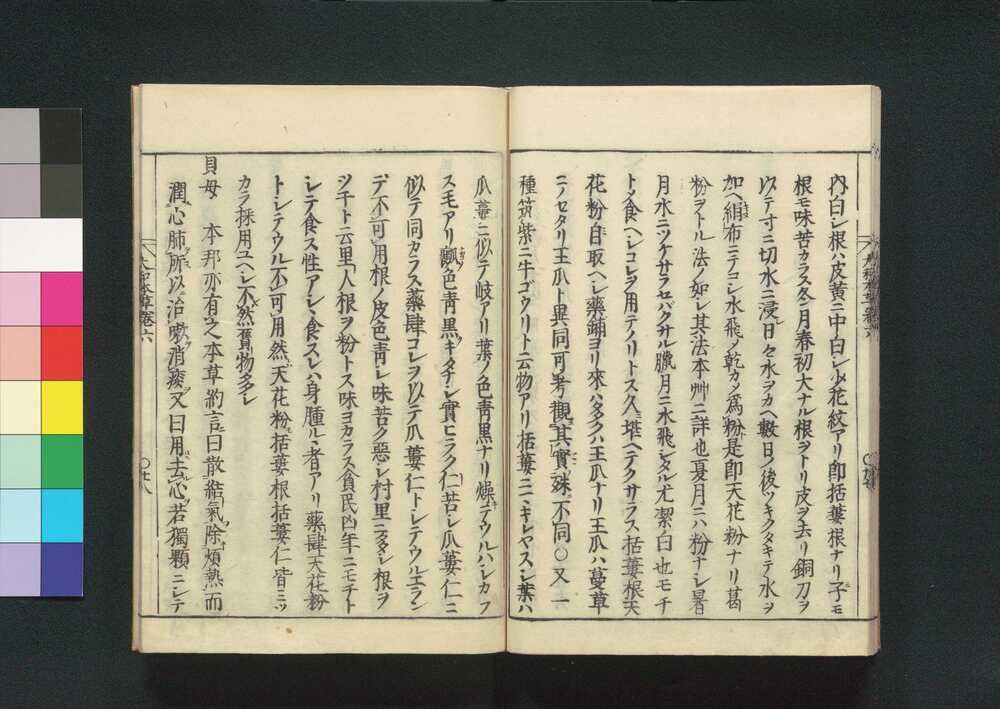 内白シ根ハ皮黄ニ中白シ少花紋アリ即括蔞根ナリ子モ
根モ味苦カラス冬月春初大ナル根ヲトリ皮ヲ去リ銅刀ヲ
以テ寸ニ切水ニ浸日々水ヲカヘ數日ノ後ツキクタキテ水ヲ
加ヘ絹布ニテコシ水飛ノ乾カメ為粉是即天花粉ナリ葛
粉ヲトル法ノ如シ其法本艸ニ詳也夏月ニハ粉ナシ暑
月水ニツケサラセバクサル臘月ニ水飛シタル尤潔白也モチ
トメ食ヘシコレヲ用テノリトス久シ堪ヘテクサラス括蔞根天
花粉自取ヘシ藥鋪ヨリ來ハ多クハ王瓜ナリ王瓜ハ蔓草
ニテセタリ王瓜ト異同可考觀其實殊不同○又一
種筑紫ニ牛ゴウリト云物アリ括蔞ニヨキレヤスシ葉ハ
瓜蔞ニ似テ岐アリ葉ノ色青黒ナリ燥テウルハシカラ
ス毛アリ瓤色青黒キタナシ實ヒラク仁苦シ瓜蔞仁ニ
似テ同カラス藥肆コレヲ以テ瓜蔞仁トシテウルエラン
デ不可用根ノ皮色青シ味苦ク惡シ村里ニ多シ根ヲ
ツチト云里人根ヲ粉トス味ヨカラス貧民凶年ニモチト
シテ食ス性アシヽ食スレハ身腫ルヽ者アリ藥肆天花粉
トシテウル不可用然天花粉括蔞根括蔞仁皆ミツ
カラ採用ユヘシ不然贋物多シ
貝母 本邦亦有之本草約言曰散結氣除煩熱而
潤心肺所以治嗽消痰又曰用去心若獨顆ニシテ
大和本草卷六
○廿八